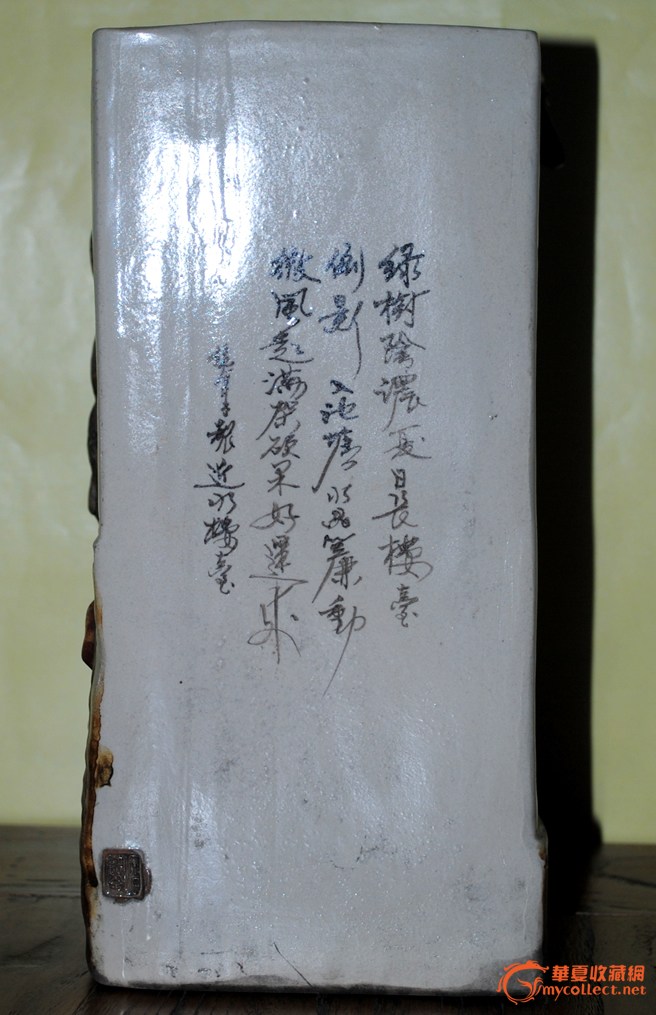 綠樹陰濃夏日長樓臺
倒影入池塘水晶簾動
微風起滿架碩果好運來
近水樓臺
華夏收藏網
mycollect.net